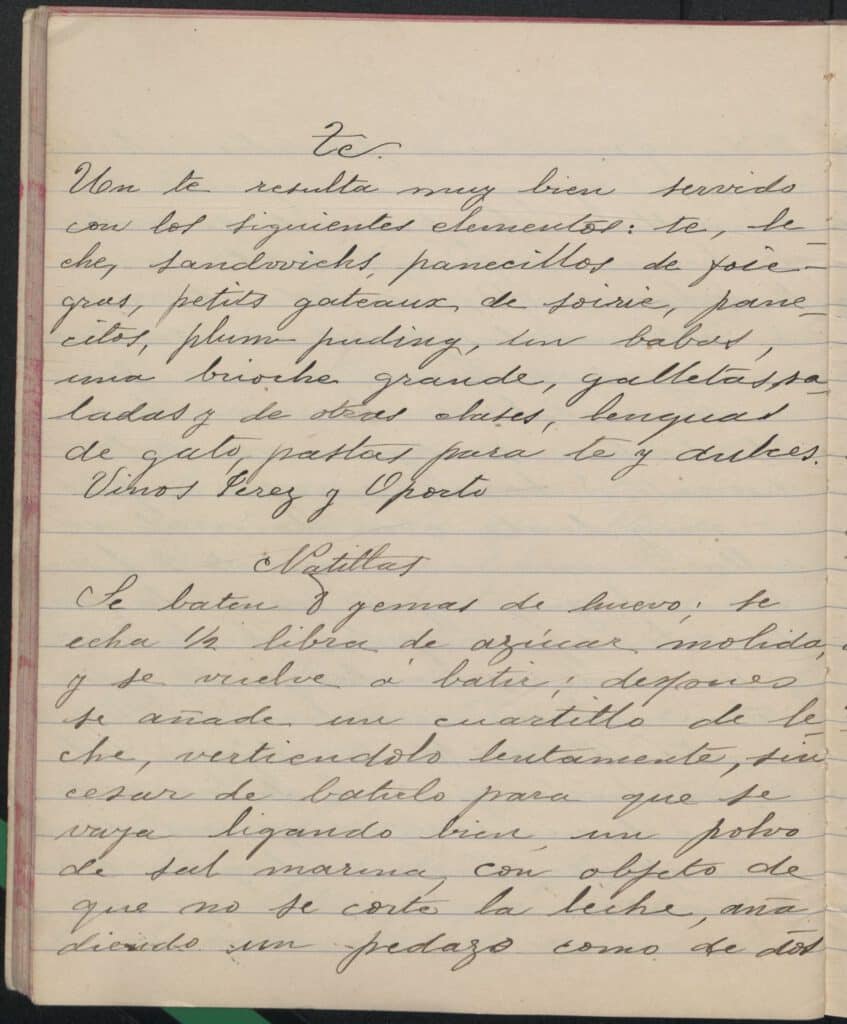 Te.
Un te resulta muy bien servido
con los siguientes elementos: te, le-
che, sandwichs, panecillos de foie-
gras, petits gateaux de soirie, pane-
citos, plum puding, un babas,
una brioche grande, galletas, sa-
ladas y de otras clases, lenguas
de gato, pastas para te y dulces.
Vinos Jerez y Oporto
Natillas
Se baten 8 yemas de huevo; se
echa 1/2 libra de azúcar molida,
y se vuelve á batir; despues
se añade un cuartillo de le-
che, vertiendolo lentamente, sin
cesar de batirlo para que se
vaya ligando bien un polvo
de sal marina, con objeto de
que no se corte la leche, aña
diendo un pedazo como de dos